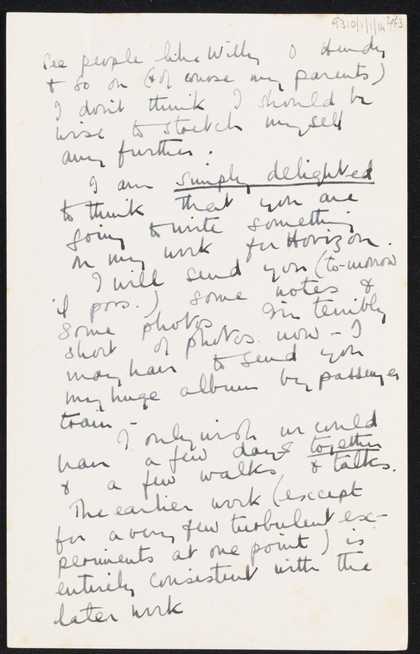 9310/1/1/14 2 of 3
See people like Willy & Hundy
& so on (& of course my parents)
I don't think I should be
wise to stretch myself
any further.
I am simply delighted
to think that you are
going to write something
on my work for Horizon.
I will send you (to-morrow
if poss.) some notes &
some photos. I'm terribly
short of photos now – I
may have to send you
my huge album by passenger
train –
I only wish we could
have a few days together
& a few walks & talks.
The earlier work (except
for a very few turbulent ex-
periments at one point) is
entirely consistent with the
later work